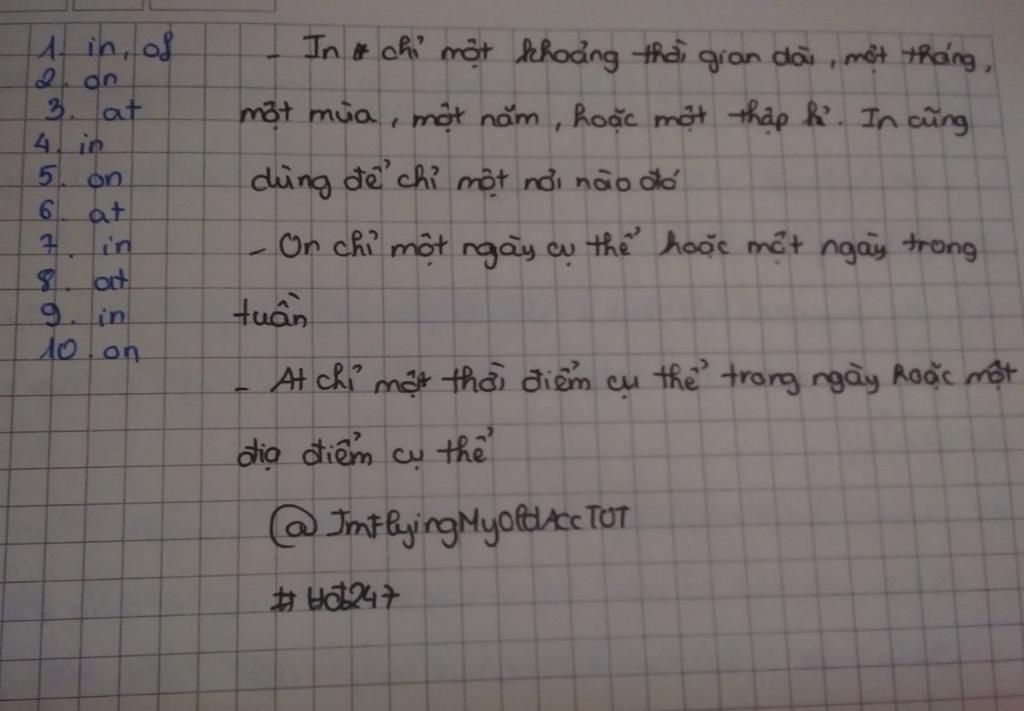 1. in, of
2. on
3. at
4. in
5. on
6. at
7. in
8. at
9. in
10. on
- In chỉ một khoảng thời gian dài, một tháng,
một mùa, một năm, hoặc một thập kỉ. In cũng
dùng để chỉ một nơi nào đó
- On chỉ một ngày cụ thể hoặc một ngày trong
tuần
- At chỉ một thời điểm cụ thể trong ngày hoặc một
địa điểm cụ thể